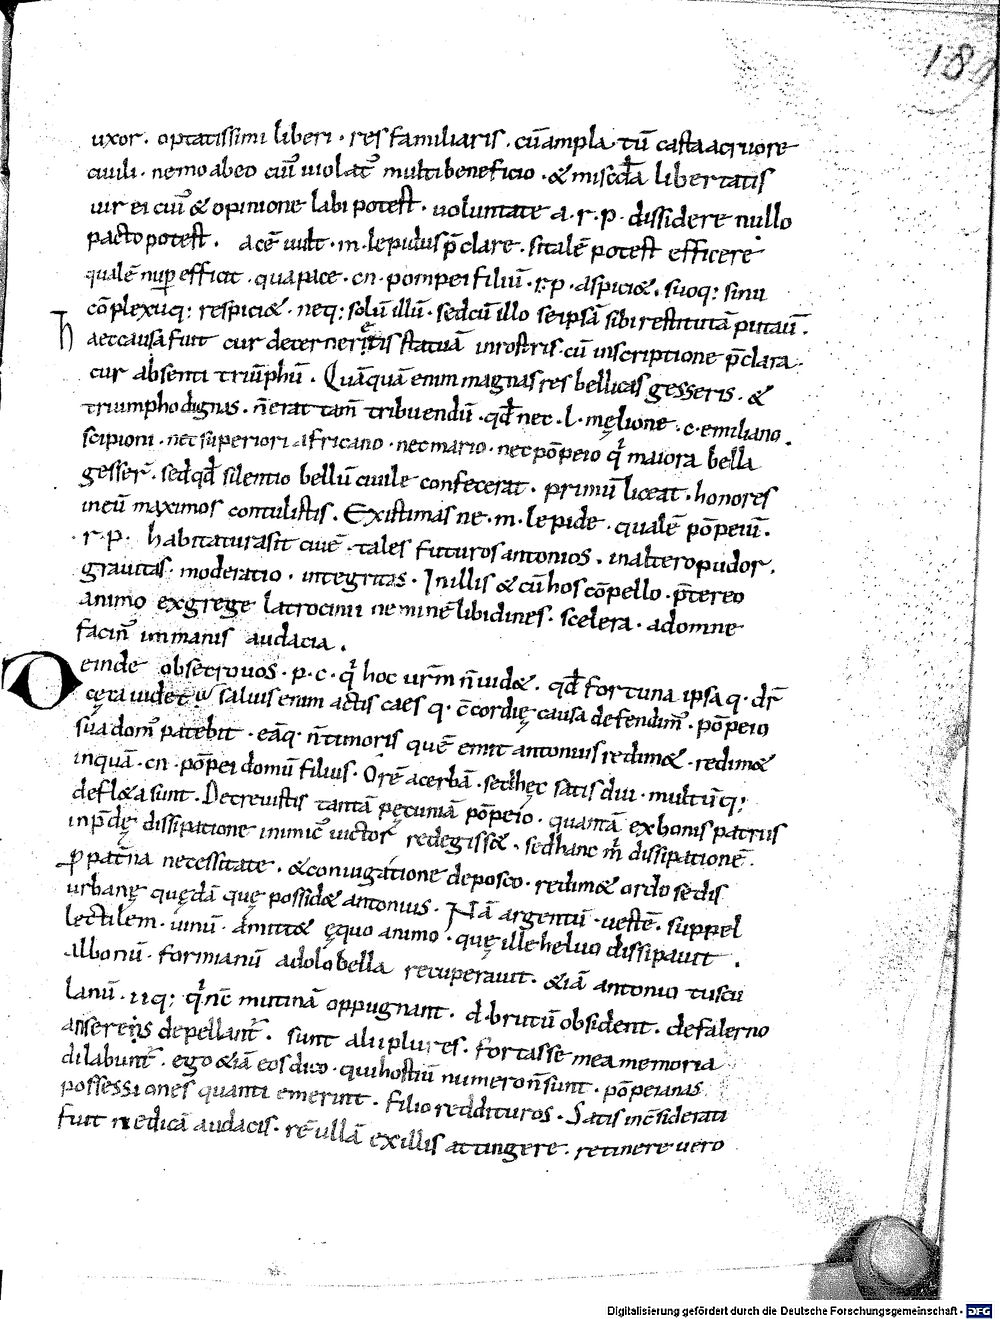 189
uxor. optatissimi liberi · res familiaris. cū ampla tū casta acruore
ciuili. nemo ab eo ciuiū uiolat᷒ multi beneficio · & mīscđa libertatis
uir ei ciuiū & opinione labi potest. uoluntate a. r. p. dissidere nullo
pacto potest. ac ē uult · m. lepidus p̄clare. si talē potest efficere
qualē nup efficit. qua pace. cn. pompei filiū. r. p. aspiciæ. suoq; sinu
cōplexuq; respici&. neq; solū illū. sed cū illo se ipsā sibi restitutā putauī.
haec causa fuit cur decerneretis statuā in rostris. cū inscriptione p̄clara.
cur absenti triūphū. Quāquā enim magnas res bellicas gesseris. &
triumpho dignas. n̄ erat tam̄ tribuendū. qđ nec. l. męlione. c. emiliano.
scipioni. nec superiori africano. nec mario. nec pōpeio qͥ maiora bella
gesser̄. sed qđ silentio bellū ciuile confecerat. primū liceat. honores
in eū maximos contulistis. Existimas ne. m. lepide. qualē pōpeiū.
r. p. habitatura sit ciuē. tales futuros antonios. in altero pudor.
grauitas. moderatio. integritas. In illis & cū hos cōpello. p̄tereo
animo ex grege latrocinii neminē libidines. scelera. ad omne
facin᷒ immanis audacia.
Deinde obsecro uos. p. c. qͥ hoc urm̄ n̄ uid&. qđ fortuna ipsa q. dr̄
cęca uidet᷒ saluis enim actis caes q. c̄cordię causa defendim᷒. pōpeio
sua dom᷒ patebit. eāq. n̄ timoris quē emit antonius redim&. redim&
inquā. cn. pōpei domū filius. O rē acerbā. sed hęc satis diu. multūq;
defl&a sunt. Decreuistis tantā pęcuniā pōpeio. quantā ex bonis patriis
in p̄dę dissipatione inimic᷒ uictor redegiss&. sed hanc m̄ dissipationē.
p pat̄na necessitate. & coniugatione deposco. redim& ordo sedis
urbanę quędā quę possid& antonius. Nā argentū. uestē. suppel
lectilem. uinū. amitt& ęquo animo. quę ille heluo dissipauit.
Albonū. formianū a dolobella recuperauit. &iā antonio tuscu
lanū. iiq; qͥ nc̄ mutinā oppugnant. d. brutū obsident. de falerno
anserens depellant᷒. sunt alii plures. fortasse mea memoria
dilabunt᷒. ego &iā eos dico. qui hostiū numero n̄ sunt. pōpeianas
possessiones quanti emerint. filio reddituros. Satis incōsiderati
fuit ne dicā audacis. rē ullā ex illis attingere. retinere uero
Digitalisierung gefördert durch die Deutsche Forschungsgemeinschaft - DFG